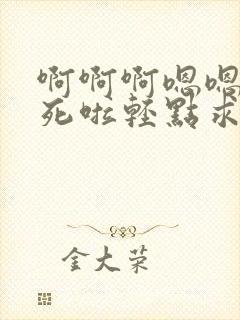 啊啊啊嗯嗯
死啦轻點求
金大荣